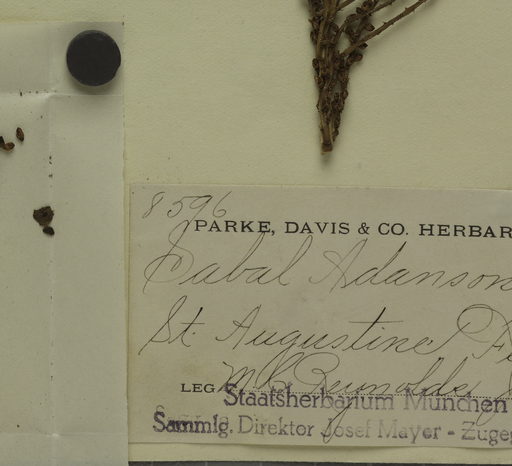 8596
PARKE, DAVIS & CO. HERBAR
Sabal Adanson
St. Augustine F
LEG M C Reynolds
Staatsherbarium München
Sammlg. Direktor Josef Mayer - Zuge